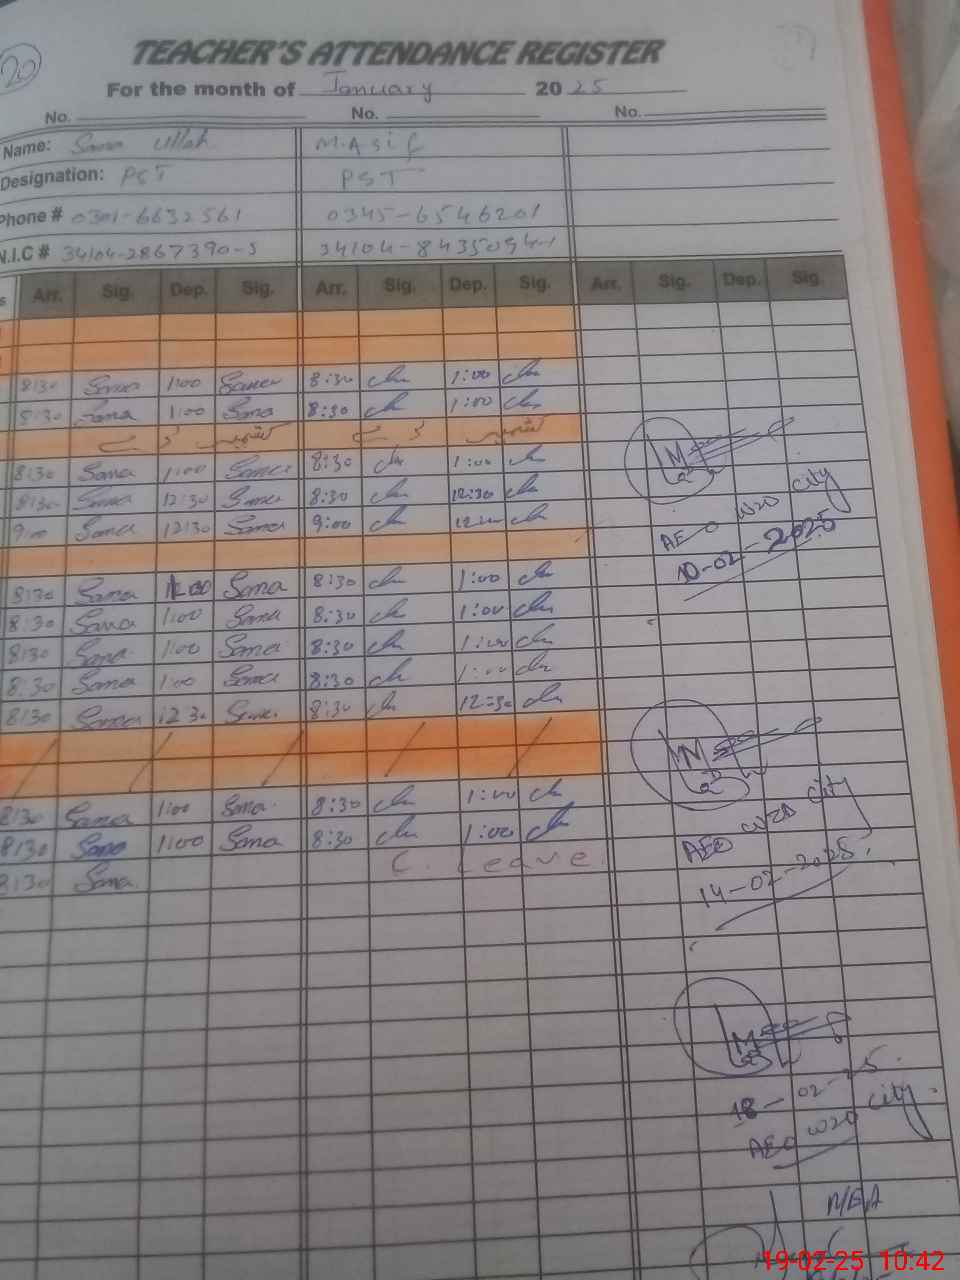 20
TEACHER'S ATTENDANCE REGISTER
For the month of January 2025
No. No. No.
Name: Sana Ullah M. Asif
Designation: PST PST
Phone # 0301-6632561 0345-6546201
N.I.C # 34104-2867390-5 34104-8435094-1
s Arr. Sig. Dep. Sig. Arr. Sig. Dep. Sig. Arr. Sig. Dep. Sig.
8:30 Sana 1:00 Sana 8:30 1:00
8:30 Sana 1:00 Sana 8:30 1:00
کشمیر ڈے کشمیر ڈے
8:30 Sana 1:00 Sana 8:30 1:00
8:30 Sana 12:30 Sana 8:30 12:30
9:00 Sana 12:30 Sana 9:00
AEO W20 City
10-02-2025
8:30 Sana 1:00 Sana 8:30 1:00
8:30 Sana 1:00 Sana 8:30 1:00
8:30 Sana 1:00 Sana 8:30 1:00
8:30 Sana 1:00 Sana 8:30 1:00
8:30 Sana 12:30 Sana 8:30 12:30
8:30 Sana 1:00 Sana 8:30 1:00
8:30 Sana 1:00 Sana 8:30 1:00
8:30 Sana C. Leave
AEO W20 City
14-02-2025
18-02-25
AEO W20 City
MEA
19-02-25 10:42